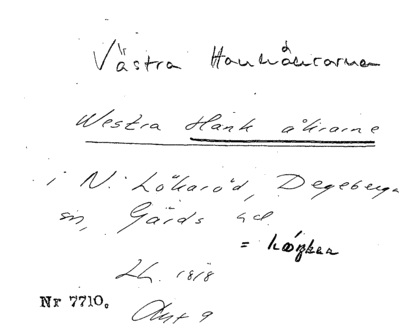 Västra Hankåkrarna
Westra Hank åkrarne
i N. Lökaröd, Degeberga
sn, Gärds hd.
=
Lh. 1818
Nr 7710.
Akt 9